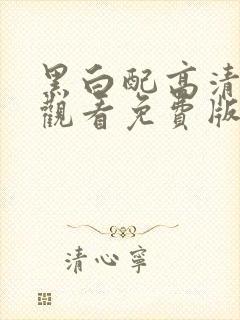 黑白配高清
觀看免費版
清心寧